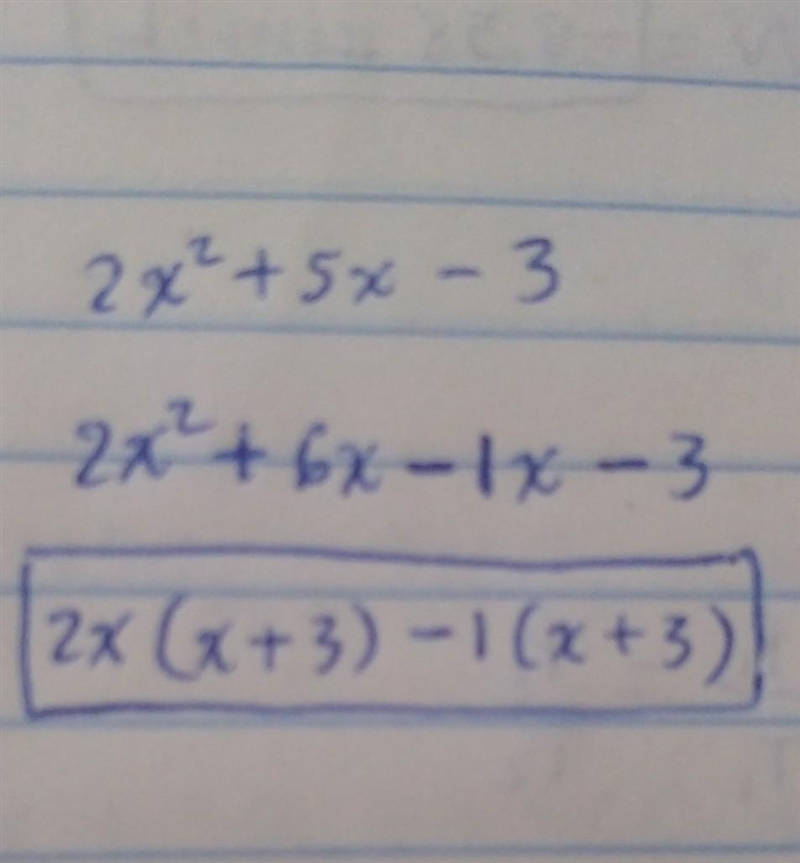 2x² + 5x - 3
2x² + 6x - 1x - 3
2x (x + 3) - 1 (x + 3)